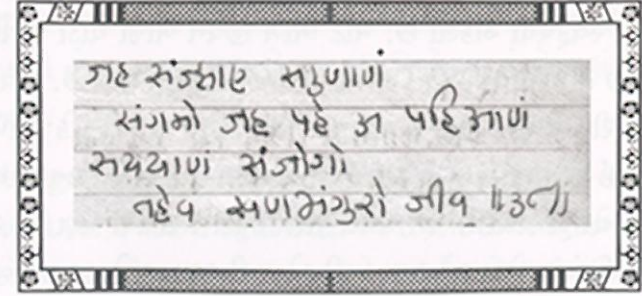 जह संझाए सउणाणं
संगमो जह पहे अ पहिआणं
सयणाणं संजोगो
तहेव खणभंगुरो जीव ॥३८॥